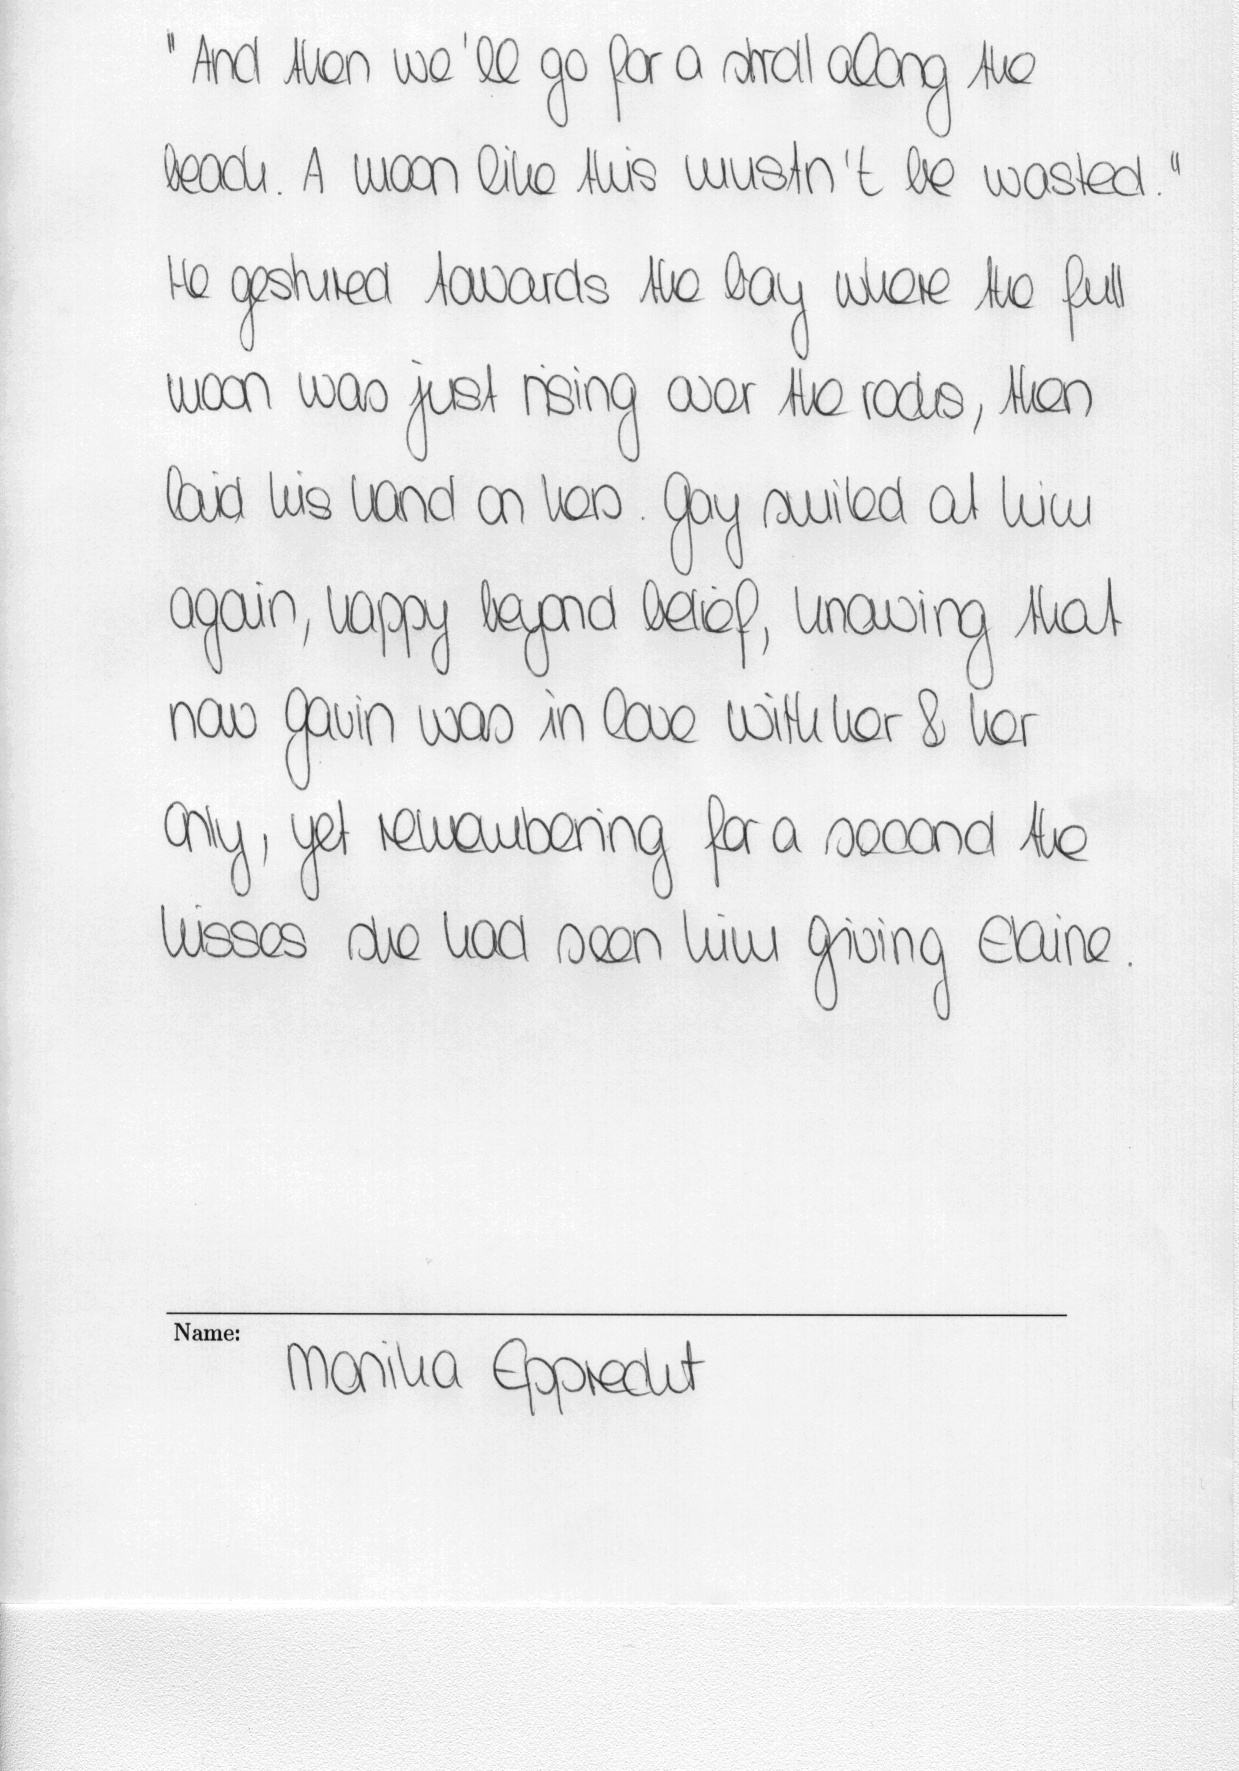 "And then we'll go for a stroll along the
beach. A moon like this mustn't be wasted."
He gestured towards the bay where the full
moon was just rising over the rocks, then
laid his hand on hers. Gay smiled at him
again, happy beyond belief, knowing that
now Gavin was in love with her & her
only, yet remembering for a second the
kisses she had seen him giving Elaine.
Name:
Monika Epprecht